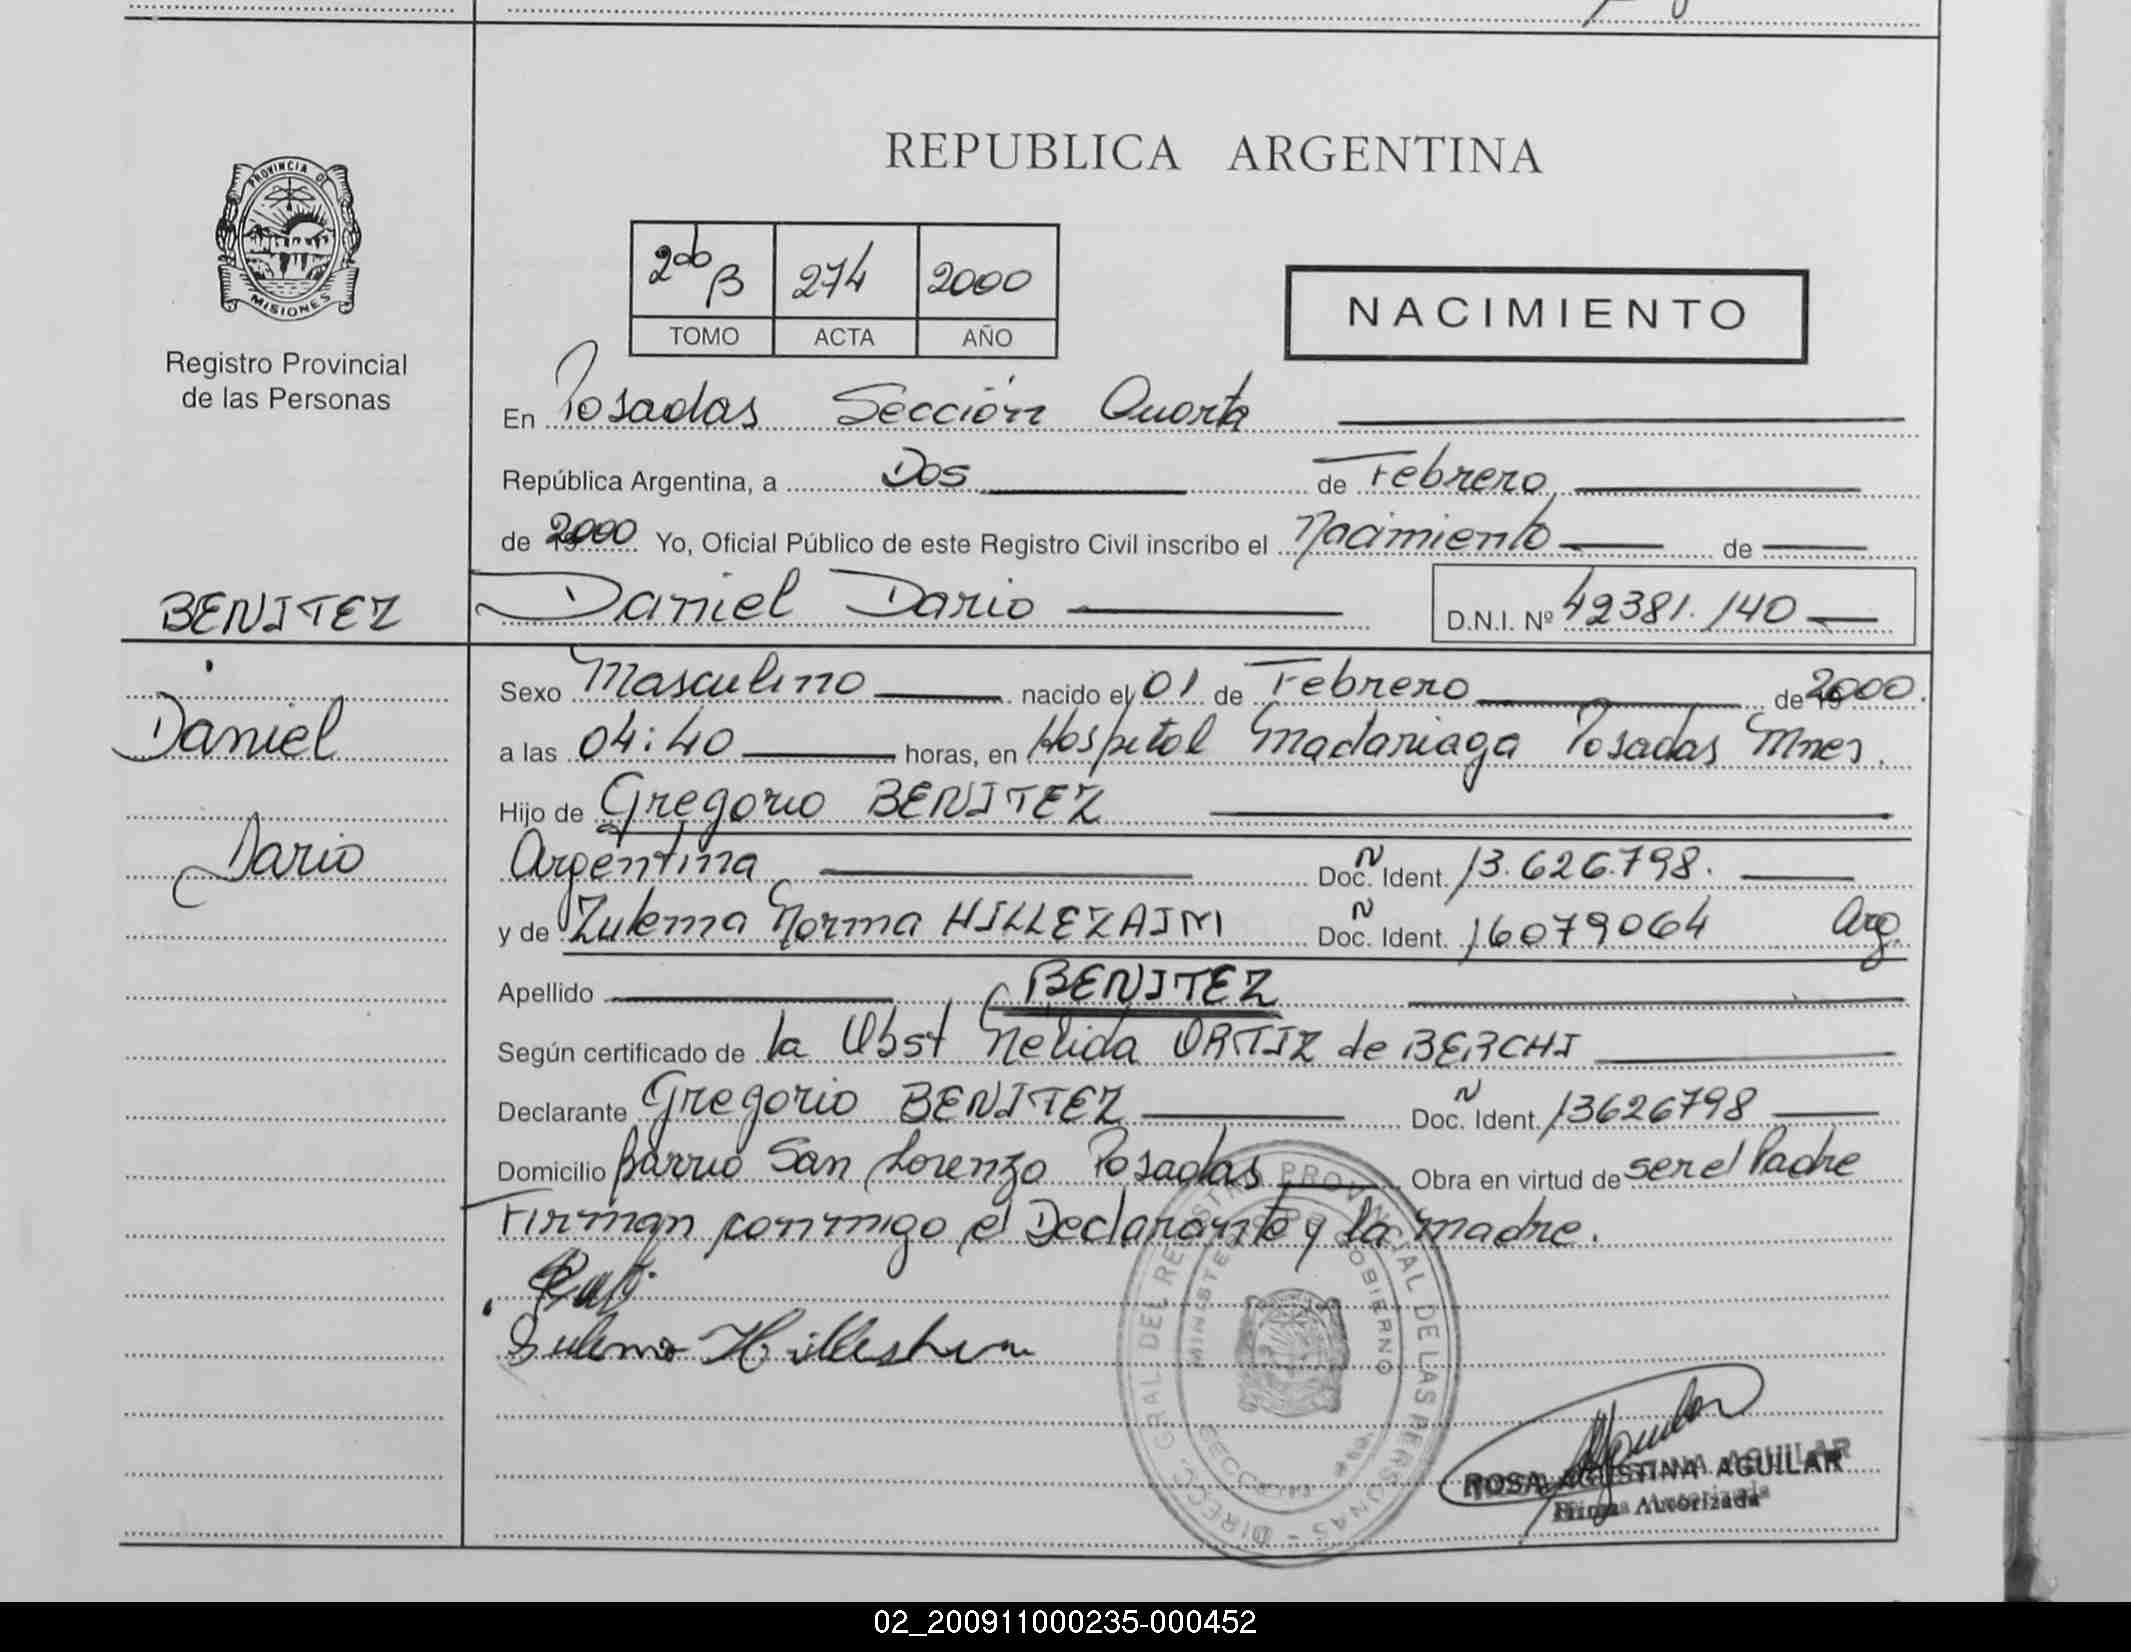 PROVINCIA DE
MISIONES
Registro Provincial
de las Personas
REPUBLICA ARGENTINA
2do B 274 2000
TOMO ACTA AÑO
NACIMIENTO
En Posadas Sección Cuarta
República Argentina, a Dos de Febrero
de 2000 Yo, Oficial Público de este Registro Civil inscribo el Nacimiento de
BENITEZ Daniel Dario D.N.I. Nº 42381.140
Sexo Masculino nacido el 01 de Febrero de 2000.
Daniel
a las 04:40 horas, en Hospital Madariaga Posadas Mnes.
Hijo de Gregorio BENITEZ
Dario
Argentina Doc. N Ident. 13.626.798.
y de Zulema Norma HILLEZAIM Doc. N Ident. 16079064 Arg.
Apellido BENITEZ
Según certificado de la Obst Nelida ORTIZ de BERCHI
Declarante Gregorio BENITEZ Doc. N Ident. 13626798
Domicilio Barrio San Lorenzo Posadas Obra en virtud de ser el Padre
Firman conmigo el Declarante y la madre.
DIRECC. GRAL. DEL REGISTRO PROVINCIAL DE LAS PERSONAS
MINISTERIO DE GOBIERNO
ROSA AGUSTINA AGUILAR
Firma Autorizada
02_200911000235-000452